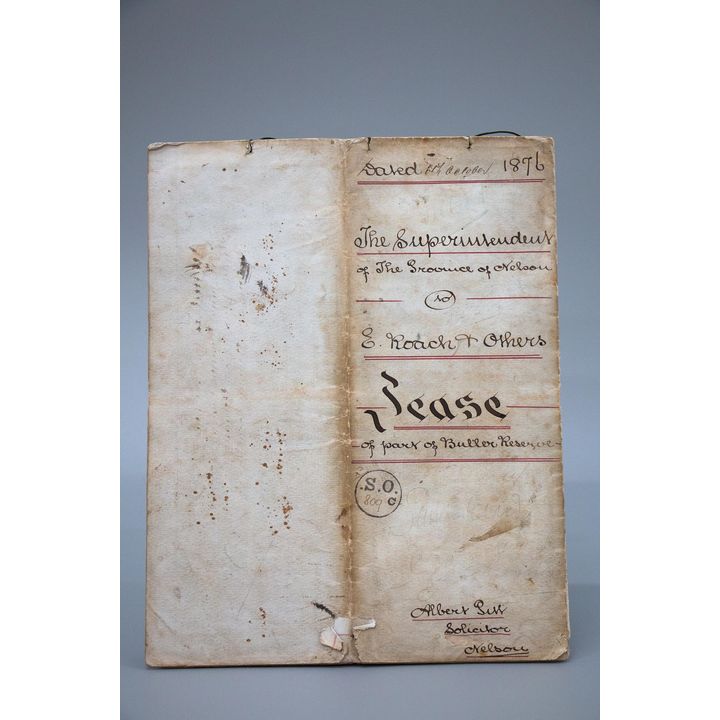 Dated October 1876
The Superintendent
of The Province of Nelson
to
E. Roach & Others
Lease
of part of Buller Reserve
.S.O.
809 c
Albert Pitt
Solicitor
Nelson